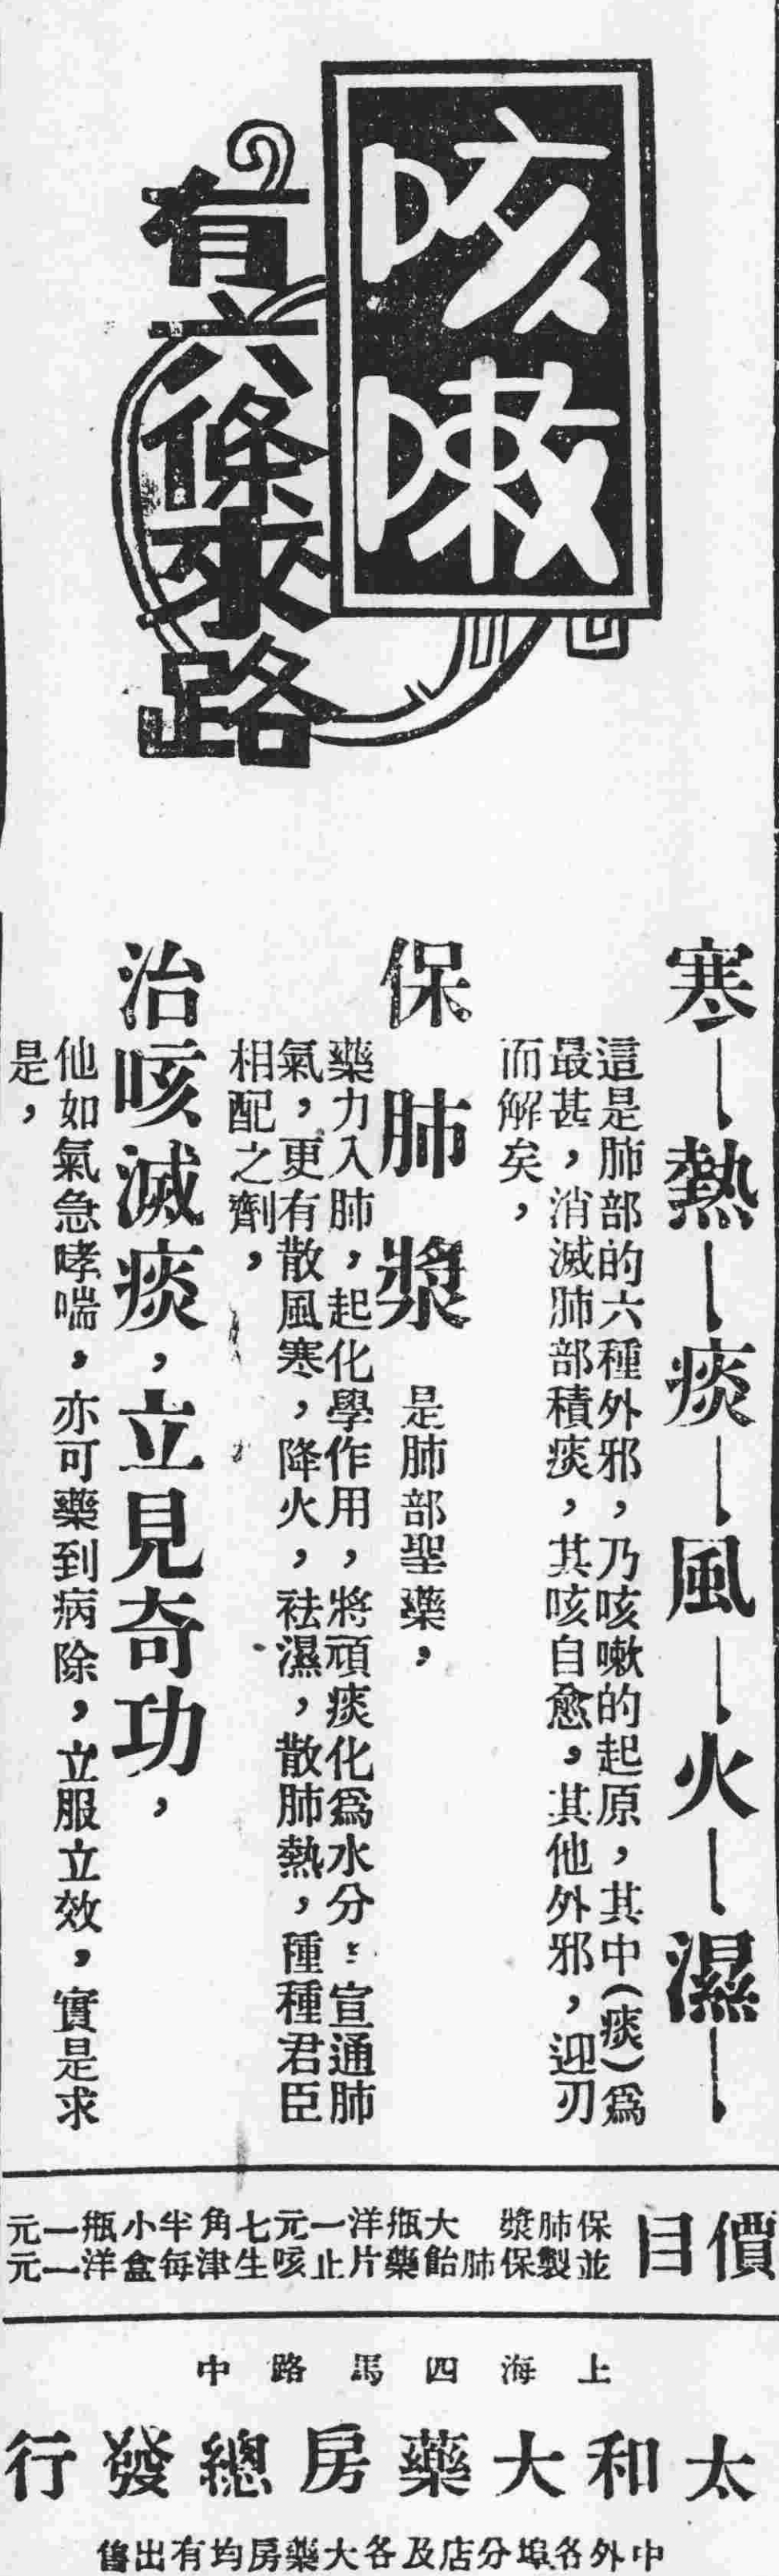 咳嗽
有六條來路
寒—熱—痰—風—火—濕—
這是肺部的六種外邪，乃咳嗽的起原，其中（痰）爲
最甚，消滅肺部積痰，其咳自愈。其他外邪，迎刃
而解矣，
保肺漿 是肺部聖藥，
藥力入肺，起化學作用，將頑痰化爲水分：宣通肺
氣，更有散風寒，降火，袪濕，散肺熱，種種君臣
相配之劑，
治咳滅痰，立見奇功，
他如氣急哮喘，亦可藥到病除，立服立效，實是求
是，
價目
保肺漿 大瓶洋一元七角半小瓶一元
並製保肺飴藥片止咳生津每盒洋一元
上海四馬路中
太和大藥房總發行
中外各埠分店及各大藥房均有出售